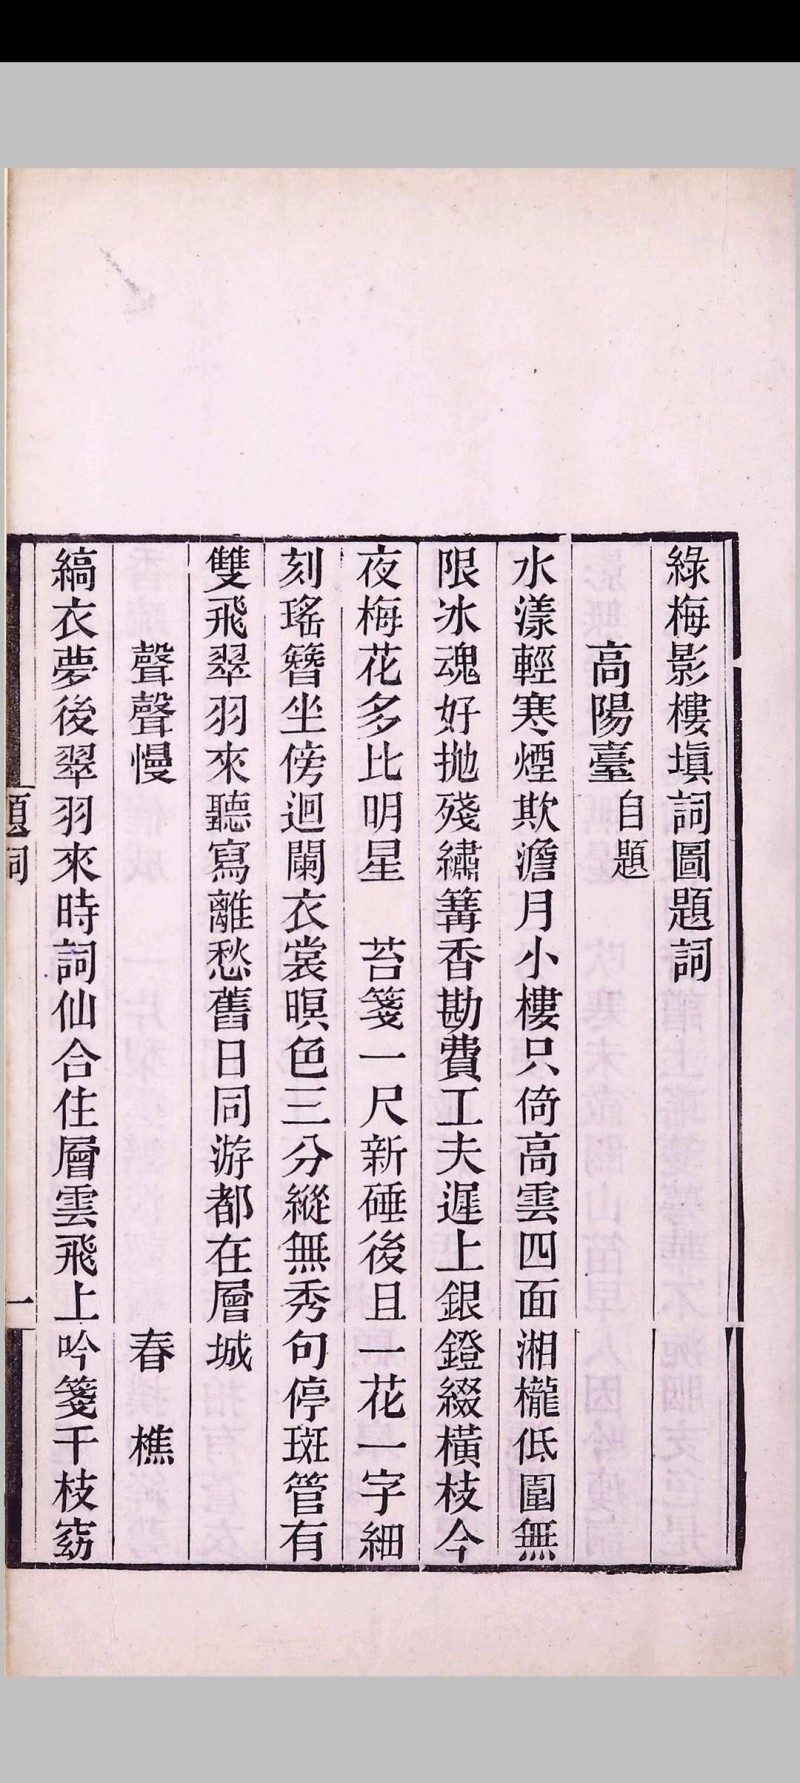 綠梅影樓塡詞圖題詞
高陽臺自題
水漾輕寒煙欺澹月小樓只倚高雲四面湘櫳低圍無
限冰魂好拋殘繡篝香勘費工夫遲上銀鐙綴橫枝今
夜梅花多比明星　苔箋一尺新硾後且一花一字細
刻瑤簪坐傍迴闌衣裳暝色三分縱無秀句停斑管有
雙飛翠羽來聽寫離愁舊日同游都在層城
聲聲慢　春樵
縞衣夢後翠羽來時詞仙合住層雲飛上吟箋千枝窈
題詞
一